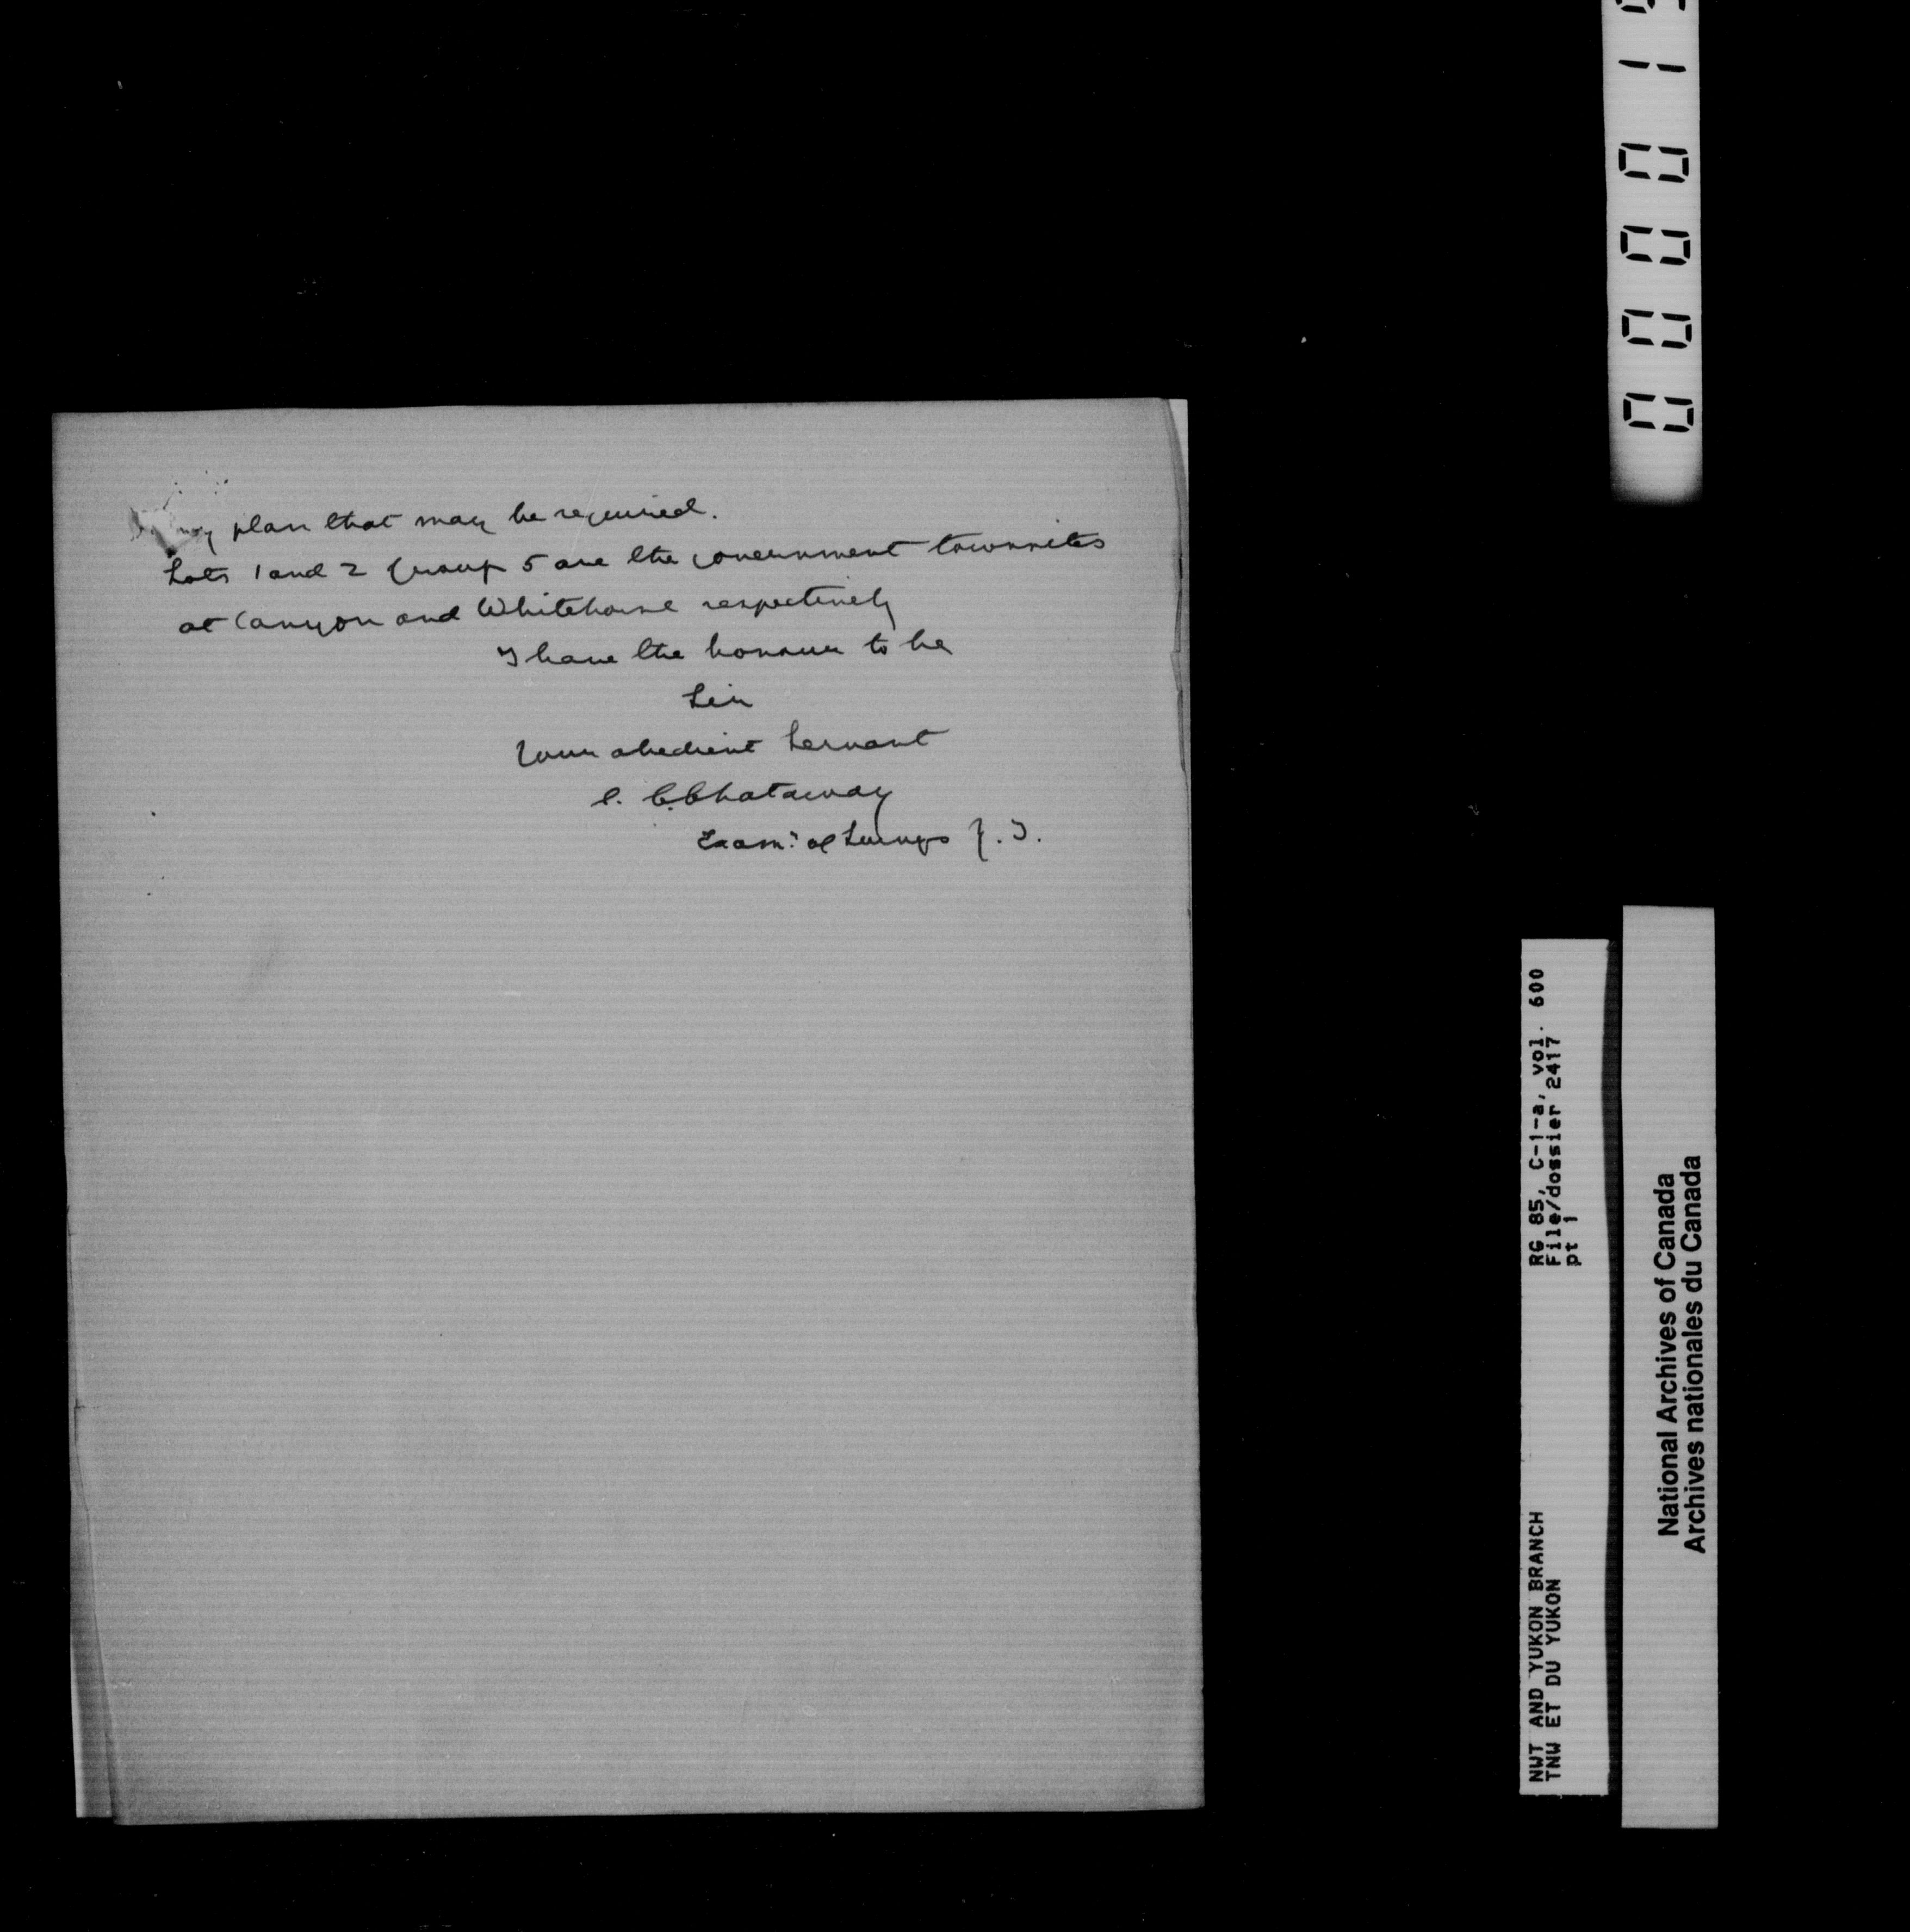 any plan that may be required.
Lots 1 and 2 Group 5 are the Government townsites
at Canyon and Whitehorse respectively
I have the honour to be
Sir
Your obedient Servant
C. C. Chataway
Exam.r of Surveys Y. T.
0 0 0 0 1
RG 85, C-1-a, vol. 600
File/dossier 2417
pt 1
NWT AND YUKON BRANCH
TNW ET DU YUKON
National Archives of Canada
Archives nationales du Canada